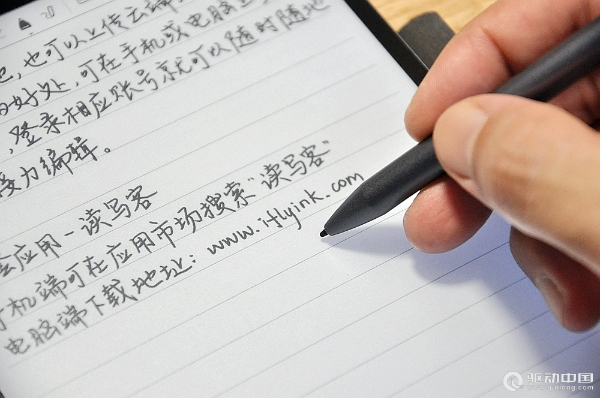 也可以上传云端
好处,可在手机或电脑
,登录相应账号就可以随时随地
接力编辑。
应用-读写客
手机端可在应用市场搜索"读写客"
电脑端下载地址:www.iflyink.com
驱动中国